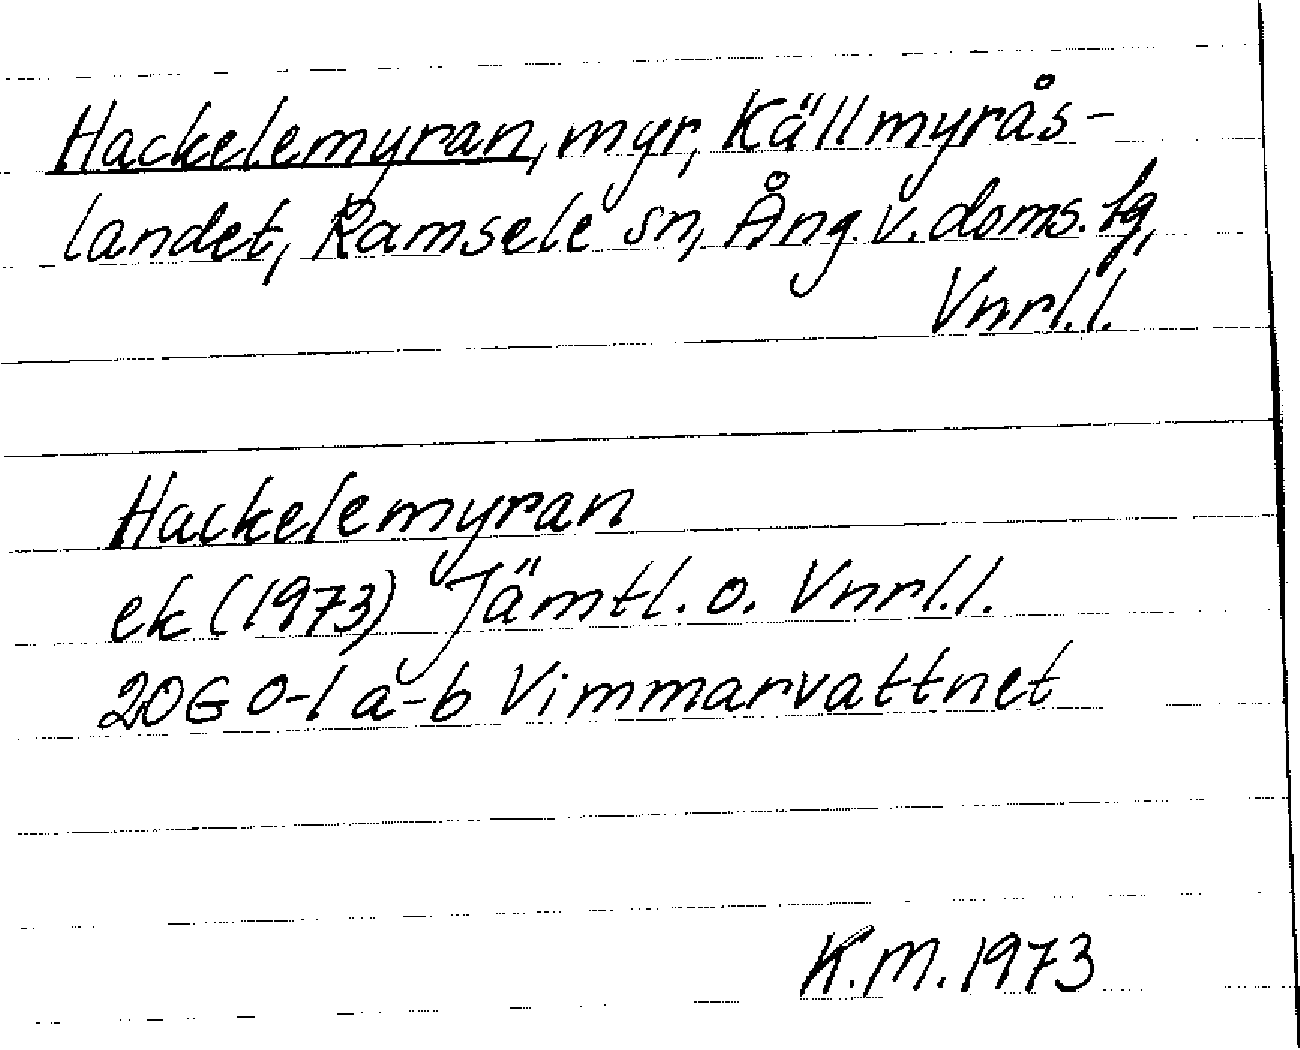 Hackelemyran, myr, Källmyrås-
landet, Ramsele sn, Ång. v. doms. tg,
Vnrl.l.
Hackelemyran
ek (1973) Jämtl. o. Vnrl.l.
20G 0-1 a-b Vimmarvattnet
K.M. 1973